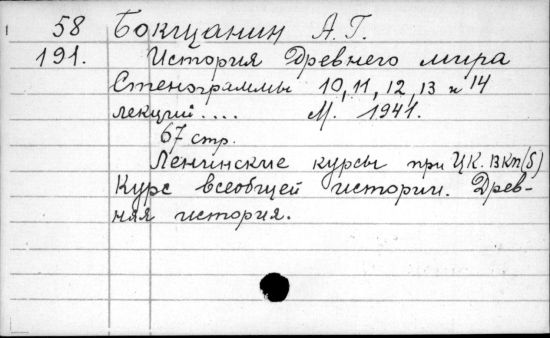 58 Бокщанин А.Г.
191. История Древнего мира
Стенограммы 10, 11, 12, 13 и 14
лекций.... М. 1941.
67 стр.
Ленинские курсы при ЦК. ВКП(б)
Курс всеобщей истории. Древ-
няя история.